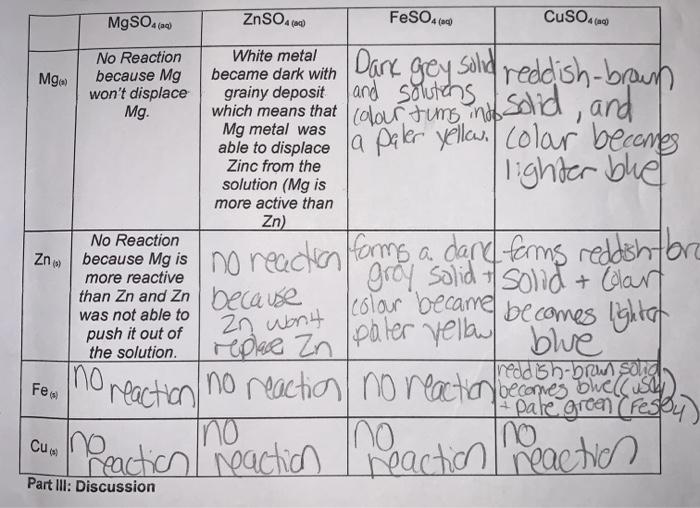 MgSO4 (aq)
ZnSO4 (aq)
FeSO4 (aq)
CuSO4 (aq)
Mg(s)
No Reaction
because Mg
won't displace
Mg.
White metal
became dark with
grainy deposit
which means that
Mg metal was
able to displace
Zinc from the
solution (Mg is
more active than
Zn)
Dark grey solid
and solutens
colour turns into
a paler yellow.
reddish-brown
solid, and
colar becomes
lighter blue
Zn (s)
No Reaction
because Mg is
more reactive
than Zn and Zn
was not able to
push it out of
the solution.
no reaction
because
Zn won't
replace Zn
forms a dark
gray solid +
colour became
paler yellow
forms reddish-bro
solid + Colar
becomes lighter
blue
Fe (s)
no reaction
no reaction
no reaction
reddish-brown solid
becomes blue (CuSO4)
+ pale green (FeSO4)
Cu (s)
no
reaction
no
reaction
no
reaction
no
reaction
Part III: Discussion